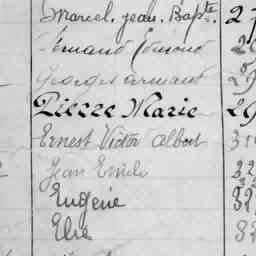 Marcel, Jean, Bapte. 27
Armand Edmond 2
Georges Armand
Pierre Marie 29
Ernest Victor Albert 31
Jean Emile 32
Eugénie 32
Elie